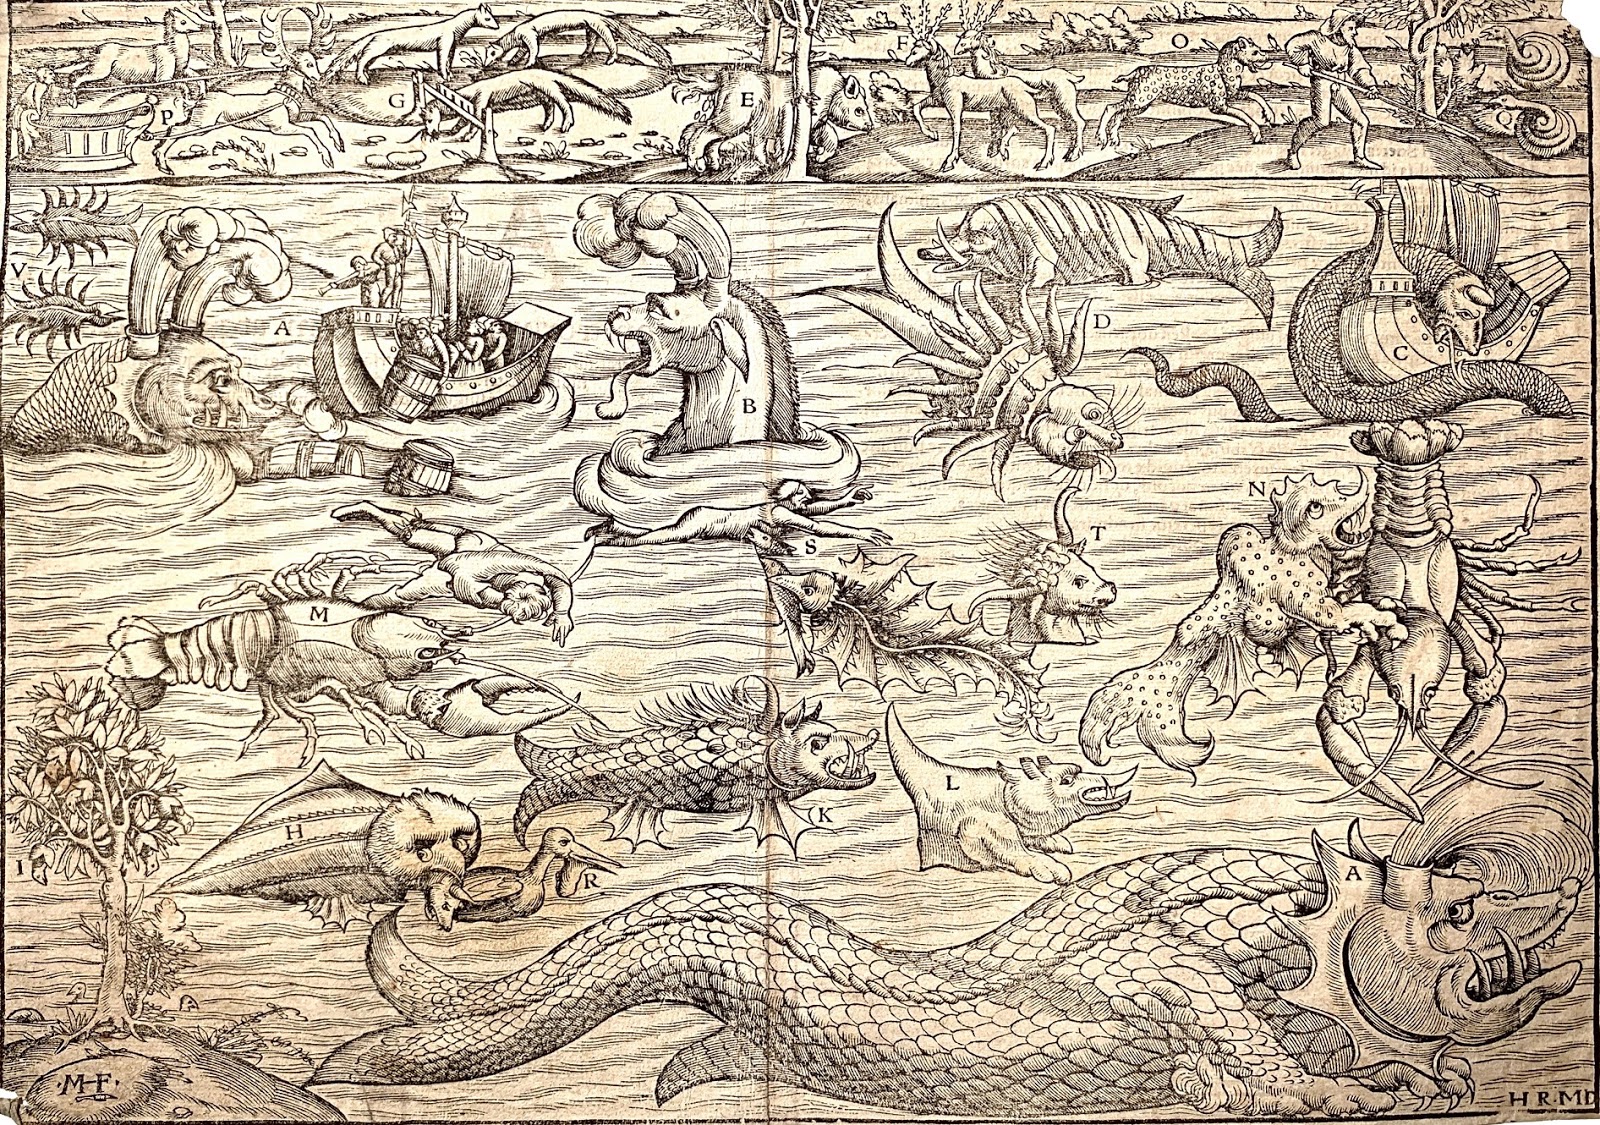 P
G
E
F
O
Q
V
A
B
D
C
N
S
T
M
H
K
L
I
R
A
·M·F·
H R·MD